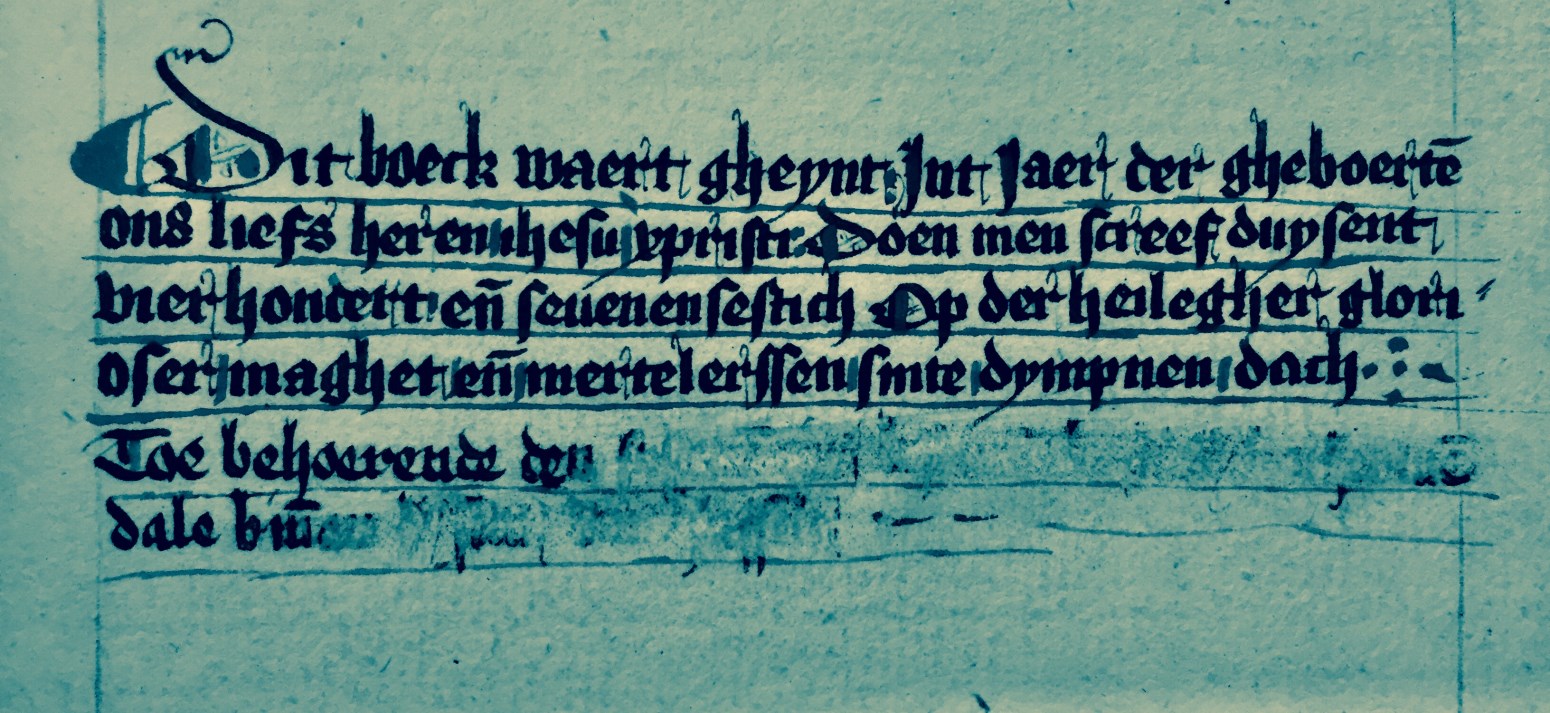 Dit boeck waert gheynt Int Jaer der gheboertē
ons liefs heren ihesu xpristi Doen men screef duysent
vier hondert en̄ seuenensestich Op der heilegher glori
oser maghet en̄ mertelerssen sinte dympnen dach
Toe behoerende den
dale bin̄